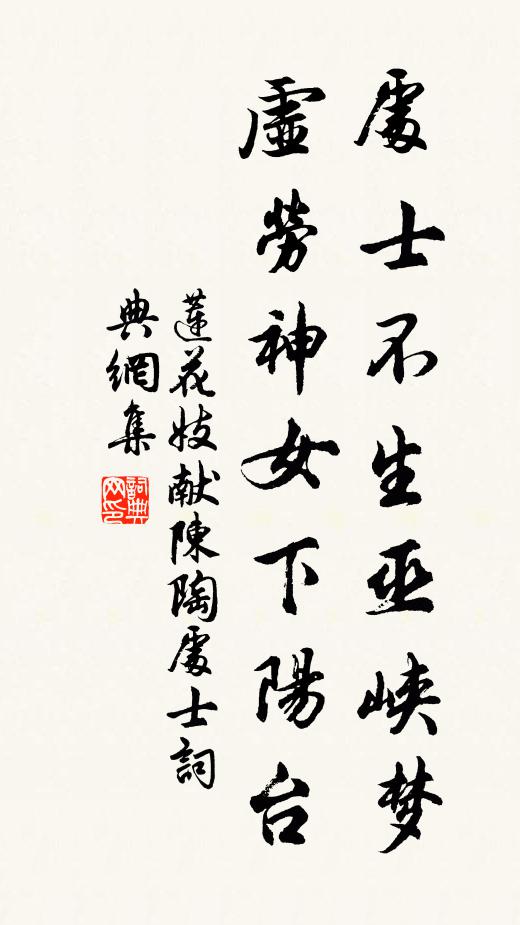 處士不生巫峽梦
虛勞神女下陽台
蓮花妓献陳陶處士詞
典網集
詞典网印